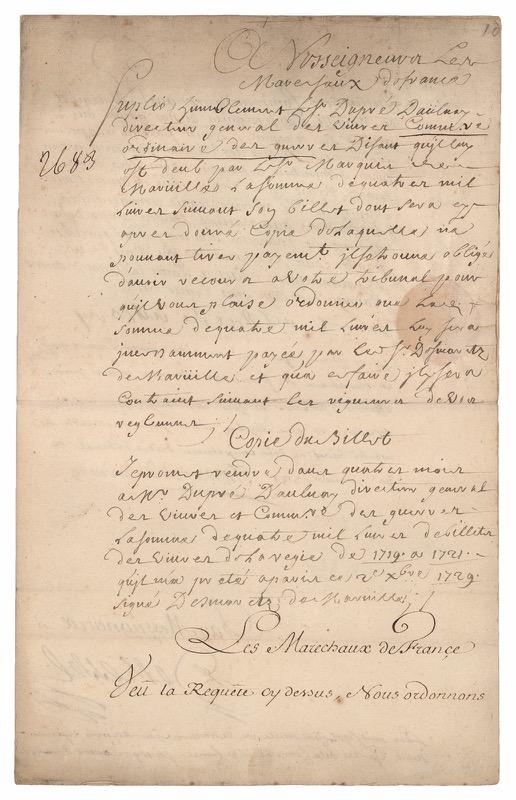 10
A Nosseigneurs Les
Mareschaux de france
Suplie humblement Le Sr. Dupré Daulnay
directeur general des vivres Commre.
ordinaire des guerres Disant qu'il luy
est deub par Le Sr. Marquis de
Maville La somme de quatre mil
Livres suivant son billet dont sera cy
apres donné Copie de laquelle na
pouvant tirer payemt. il se trouve obligé
d'avoir recours a votre tribunal pour
qu'il vous plaise ordonner que La de.
somme de quatre mil Livres luy sera
incessamment payée par Le Sr. Desmaretz
de Maville et qu'a ce faire il sera
Contraint suivant les rigueurs de vos
reglemens
2683
Copie du Billet
Je promet rendre dans quatres mois
a Mr. Dupré Daulnay directeur general
des vivres et Commre. des guerres
La somme de quatre mil Livres de billets
des vivres de La regie de 1719. a 1721.
qu'il m'a preté a paris ce 2e xbre 1729.
signé Desmaretz de Maville
Les Maréchaux de France
Veu la Requête cy dessus, Nous ordonnons